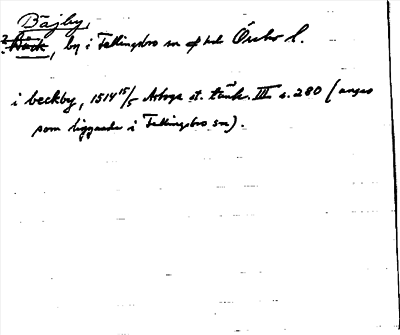 Bäjby,
? Häck, by i Fellingsbro sn Örebro l.
i beckby, 1514 15/5 Arboga st. tänk. III s. 280 (anges
som liggande i Fellingsbro sn).